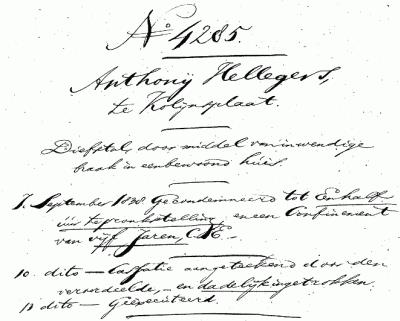 No 4285.
Anthonij Hellegers,
te Kolynsplaat.
Diefstal, door middel van inwendige
braak in een bewoond huis.
7. September 1838 Gecondemneerd tot Een half
uur tepronkstelling, en een Confinement
van vijf Jaren, C.M.E.
10. dito — Cassatie aangeteekend door den
veroordeelde, — en dadelijk ingetrokken.
12 dito — Geexecuteerd.